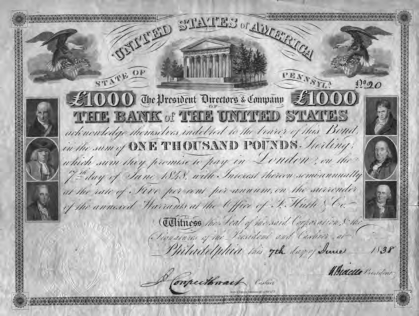 UNITED STATES of AMERICA
STATE OF PENNSYLA.
No. 20
£1000 The President Directors & Company £1000
OF
THE BANK of THE UNITED STATES
acknowledge themselves indebted to the bearer of this Bond,
in the sum of ONE THOUSAND POUNDS Sterling,
which sum they promise to pay in London, on the
7th day of June 1848, with Interest thereon semi annually
at the rate of Five per cent per annum, on the surrender
of the annexed Warrants at the Office of F. Huth & Co.
Witness the Seal of the said Corporation & the
Signatures of the President and Cashier at
Philadelphia this 7th day of June 1838
Cashier
President